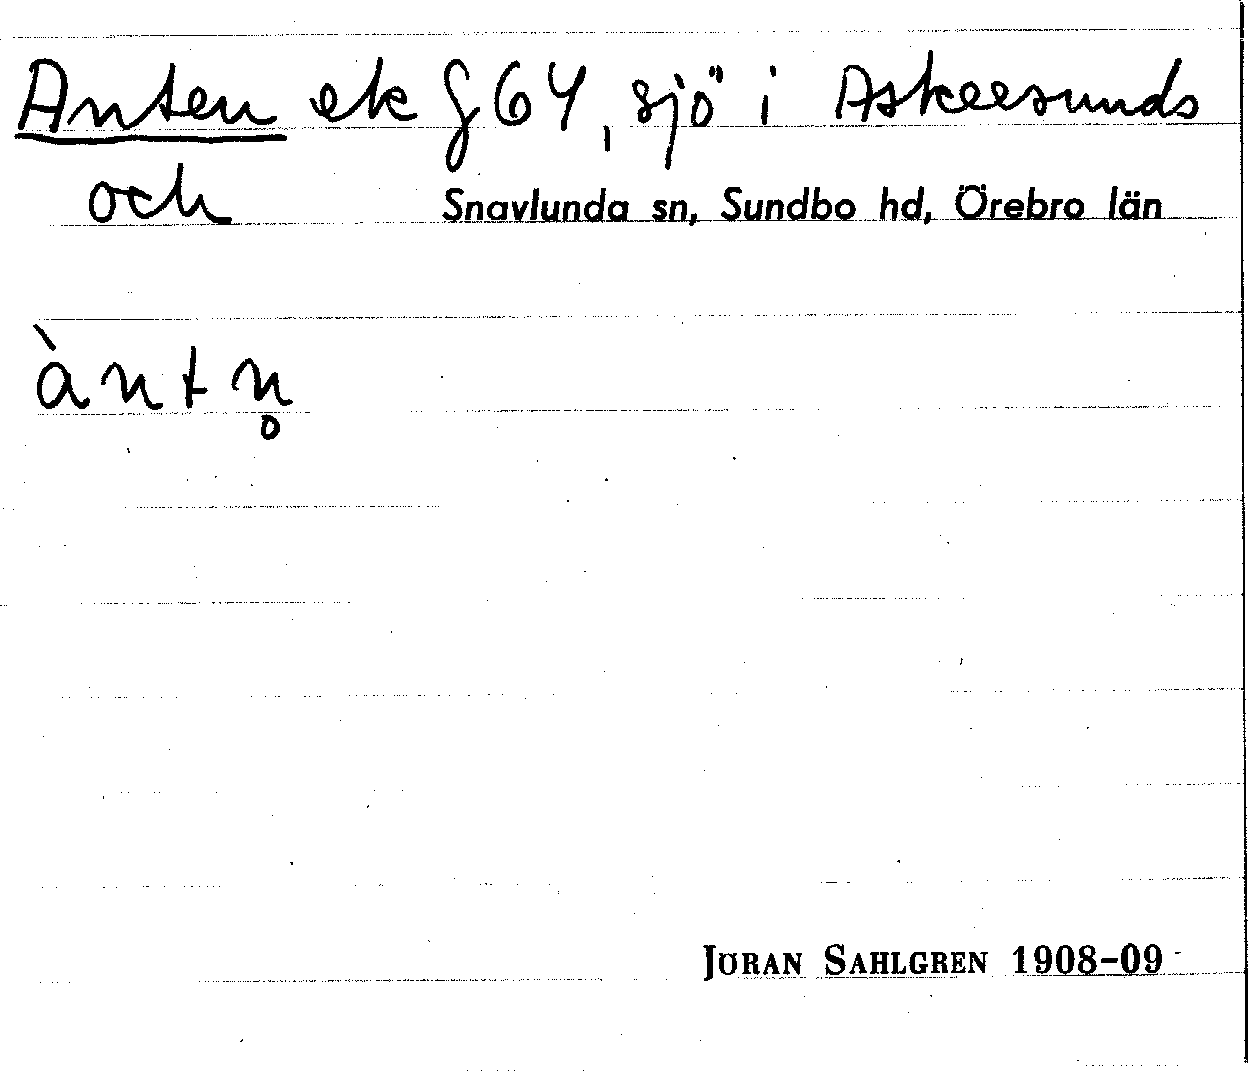 Anten ek §64, sjö i Askersunds
och Snavlunda sn, Sundbo hd, Örebro län
àntn̥
JÖRAN SAHLGREN 1908-09